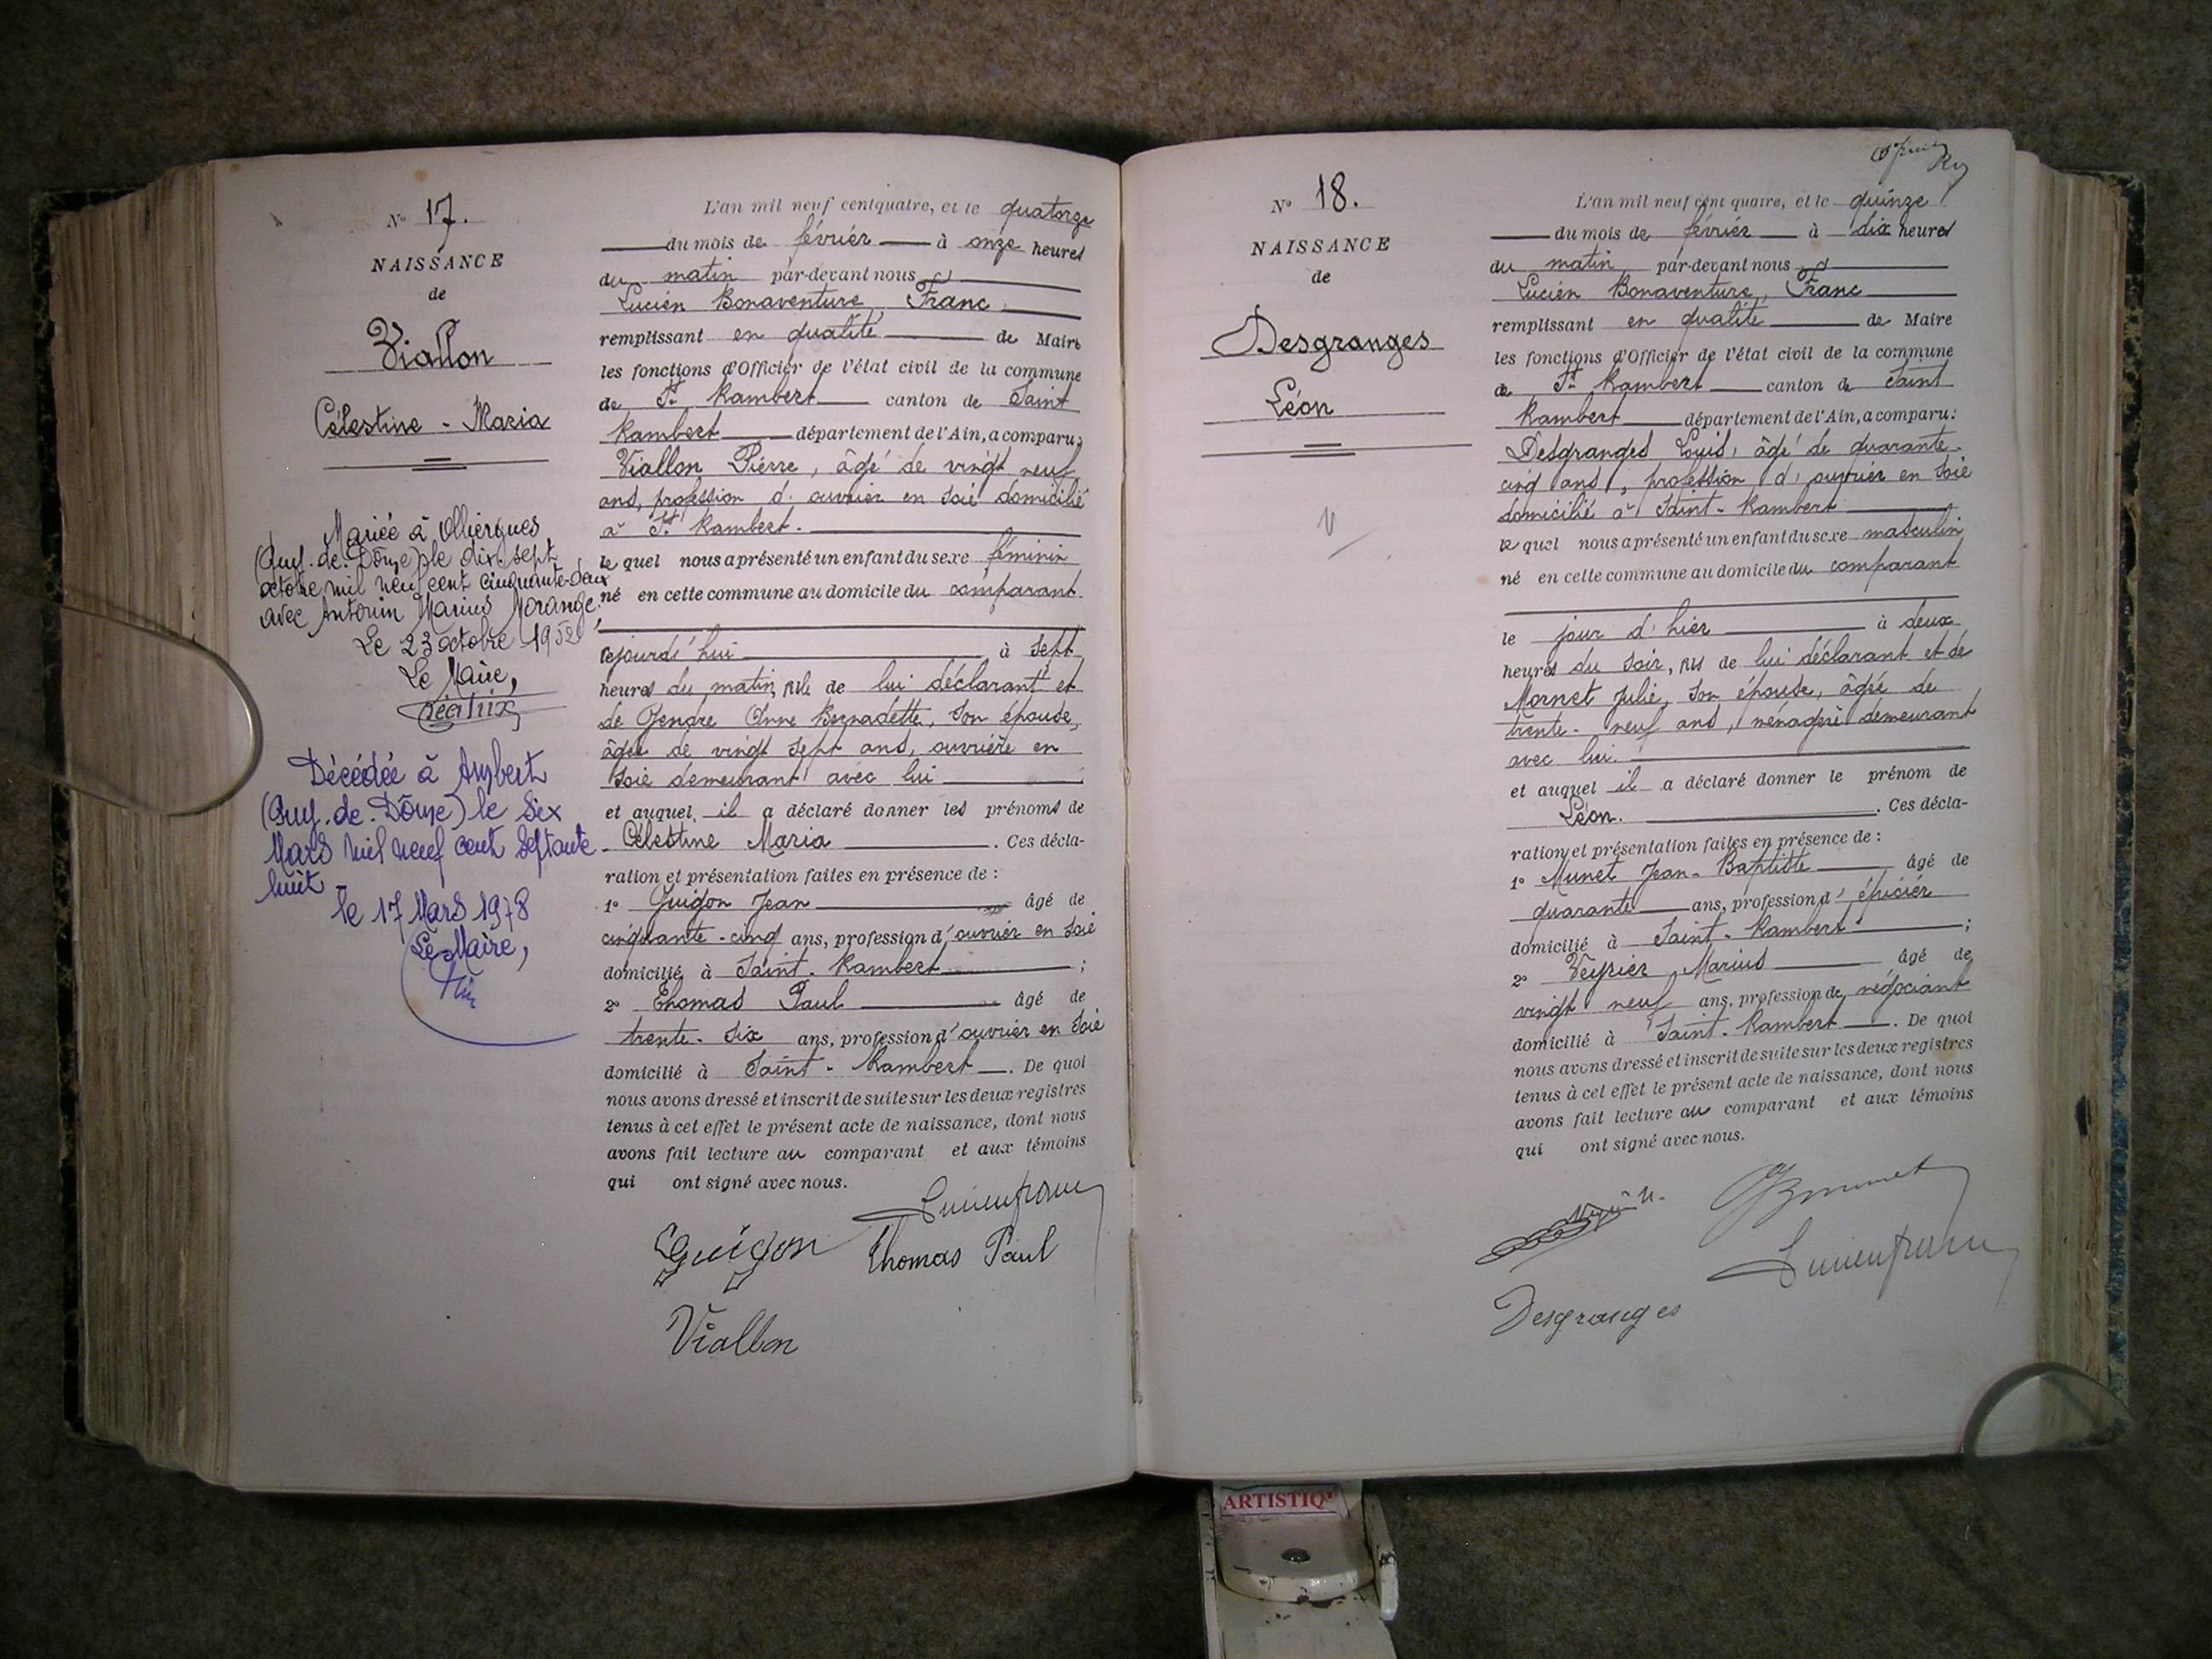 N° 17.
NAISSANCE
de
Viallon
Célestine - Maria
Mariée à Olliergues
(Puy-de-Dôme) le dix-sept
octobre mil neuf cent cinquante-deux
avec Antonin Marius Morange.
Le 23 octobre 1952
Le Maire,
Décédée à Ambert
(Puy-de-Dôme) le Six
Mars mil neuf cent septante
huit -
le 17 Mars 1978
Le Maire,
L'an mil neuf cent quatre, et le quatorze
du mois de février à onze heures
du matin par-devant nous
Lucien Bonaventure, Franc
remplissant en qualité de Maire
les fonctions d'Officier de l'état civil de la commune
de St Rambert canton de Saint
Rambert département de l'Ain, a comparu:
Viallon Pierre, âgé de vingt neuf
ans, profession d'ouvrier en soie domicilié
à St Rambert.
le quel nous a présenté un enfant du sexe féminin
né en cette commune au domicile du comparant.
cejourd'hui à sept
heures du matin, fille de lui déclarant et
de Gendre Anne Bernadette, son épouse,
âgée de vingt sept ans, ouvrière en
soie demeurant avec lui
et auquel il a déclaré donner les prénoms de
Célestine Maria. Ces décla-
ration et présentation faites en présence de :
1° Guigon Jean âgé de
cinquante-cinq ans, profession d'ouvrier en soie
domicilié à Saint-Rambert ;
2° Thomas Paul âgé de
trente-six ans, profession d'ouvrier en soie
domicilié à Saint-Rambert. De quoi
nous avons dressé et inscrit de suite sur les deux registres
tenus à cet effet le présent acte de naissance, dont nous
avons fait lecture au comparant et aux témoins
qui ont signé avec nous.
Lucien franc
Guigon Thomas Paul
Viallon
N° 18.
NAISSANCE
de
Desgranges
Léon
L'an mil neuf cent quatre, et le quinze
du mois de février à dix heures
du matin par-devant nous
Lucien Bonaventure, Franc
remplissant en qualité de Maire
les fonctions d'Officier de l'état civil de la commune
de St Rambert canton de Saint
Rambert département de l'Ain, a comparu:
Desgranges Louis, âgé de quarante-
cinq ans, profession d'ouvrier en soie
domicilié à Saint-Rambert
le quel nous a présenté un enfant du sexe masculin
né en cette commune au domicile du comparant
le jour d'hier à deux
heures du soir, fils de lui déclarant et de
Mornet Julie, son épouse, âgée de
trente-neuf ans, ménagère demeurant
avec lui.
et auquel il a déclaré donner le prénom de
Léon. Ces décla-
ration et présentation faites en présence de :
1° Munet Jean-Baptiste âgé de
quarante ans, profession d'épicier
domicilié à Saint-Rambert ;
2° Veyrier Marius âgé de
vingt neuf ans, profession de négociant
domicilié à Saint-Rambert. De quoi
nous avons dressé et inscrit de suite sur les deux registres
tenus à cet effet le présent acte de naissance, dont nous
avons fait lecture au comparant et aux témoins
qui ont signé avec nous.
Lucien franc
Desgranges
ARTISTIQ